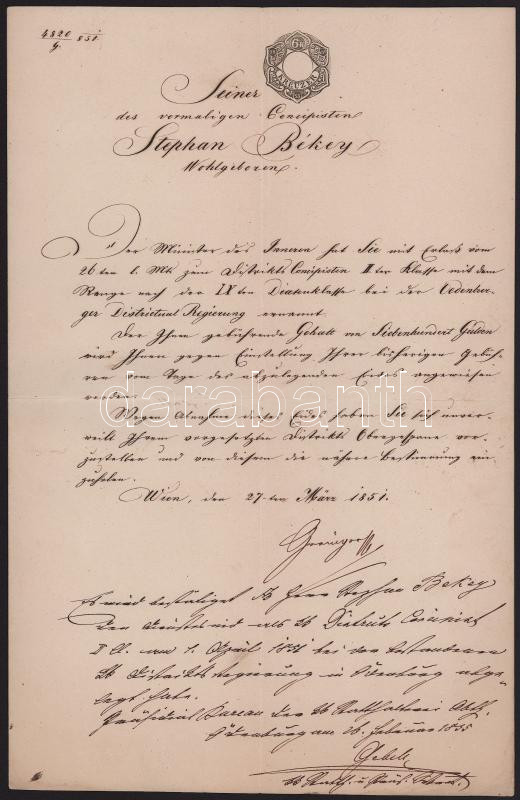 4820/G. 851.
6 K
KREUZER
Seiner
des vormaligen Concipisten
Stephan Békey
Wohlgeboren.
Der Minister des Inneren hat Sie mit Erlaß vom
26ten l. Mts zum Distrikts Concipisten II ter Klasse mit dem
Range nach der IXten Diätenklasse bei der Oedenbur-
ger Districtual Regierung ernannt.
Der Ihnen gebührende Gehalt von Siebenhundert Gulden
wird Ihnen gegen Einstellung Ihrer bisherigen Gebüh-
ren vom Tage des abzulegenden Eides angewiesen
werden.
Wegen Abnahme dieses Eides haben Sie sich unver-
weilt Ihrem vorgesetzten Distrikts Obergespane vor-
zustellen und von diesem die nähere Bestimmung ein-
zuholen.
Wien, den 27ten März 1851.
darabanth
Es wird bestätiget Herr Stephan Bekey
den als Districts
II Cl. am 1. April 1851 bei der bestandenen
Distrikts Regierung in Ödenburg abge-
legt habe.
Präsidial Bureau der Statthalterei Abth.
Ödenburg am 26. Februar 1855